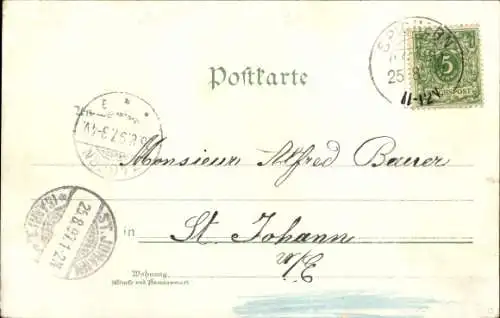 SPICHERN
25 8
11-12V.
5
REICHSPOST
Postkarte
8.97.3-4V.
Monsieur Alfred Bauer
ST. JOHANN
25.8.97.1-2N
in St Johann
Wohnung
(Straße und Hausnummer)